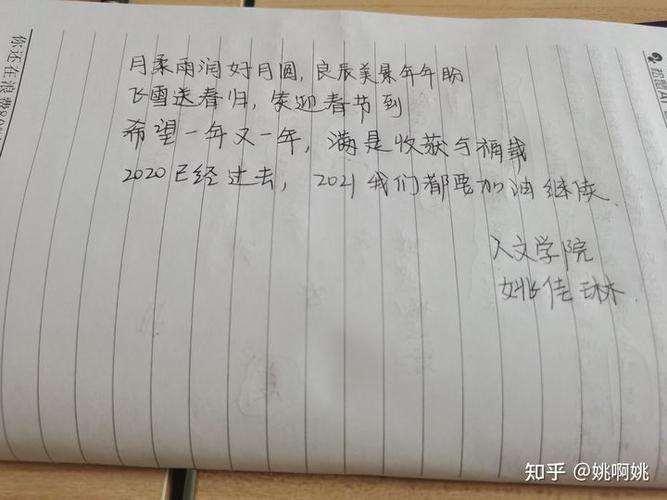 月柔雨润好月圆，良辰美景年年盼
飞雪送春归，笑迎春节到
希望一年又一年，满是收获与福载
2020已经过去，2021我们都要加油继续
人文学院
姚佳琳
你还在浪费
知乎 @姚啊姚